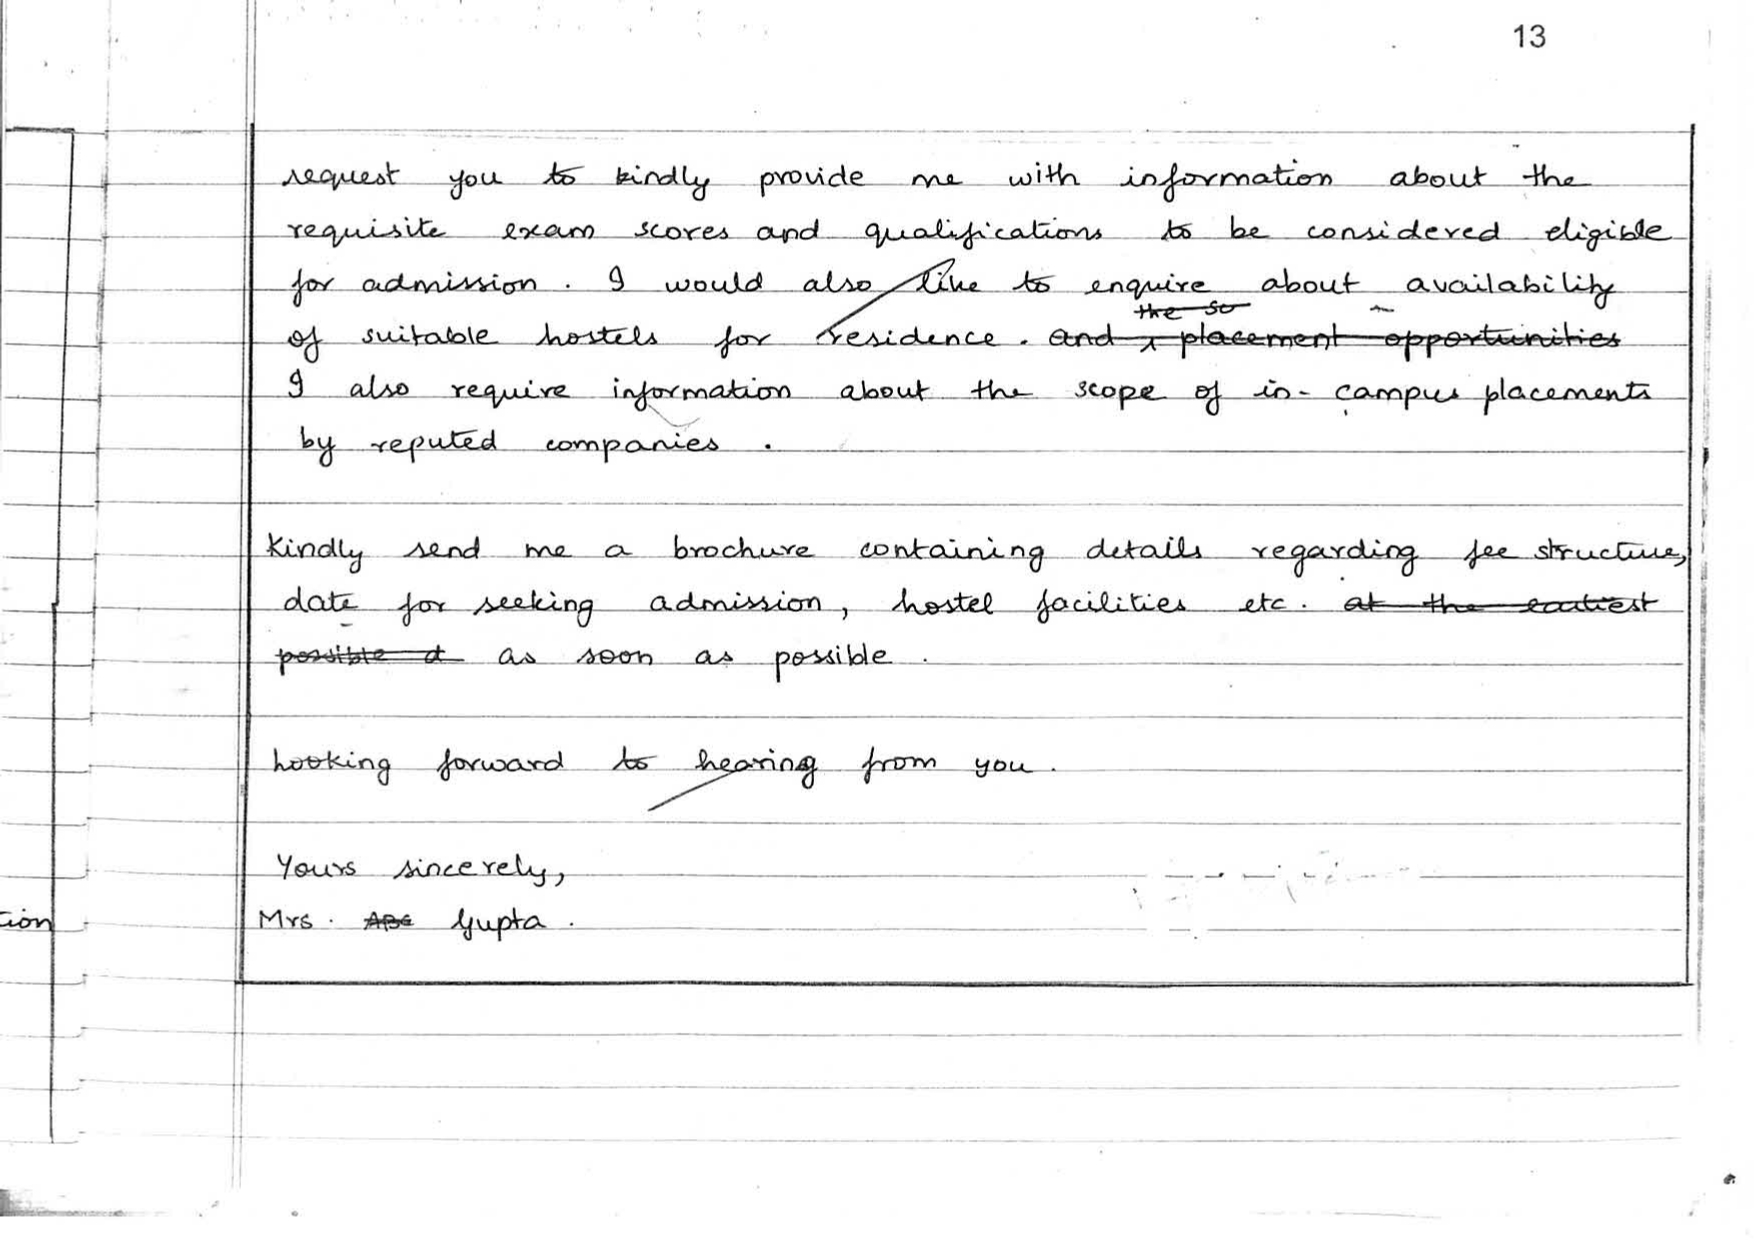 13
request you to kindly provide me with information about the
requisite exam scores and qualifications to be considered eligible
for admission. I would also like to enquire about availability
the so
of suitable hostels for residence. and placement opportunities
I also require information about the scope of in-campus placements
by reputed companies.
Kindly send me a brochure containing details regarding fee structure,
date for seeking admission, hostel facilities etc. at the earliest
possible d as soon as possible.
Looking forward to hearing from you.
Yours sincerely,
Mrs. ABC Gupta.
tion